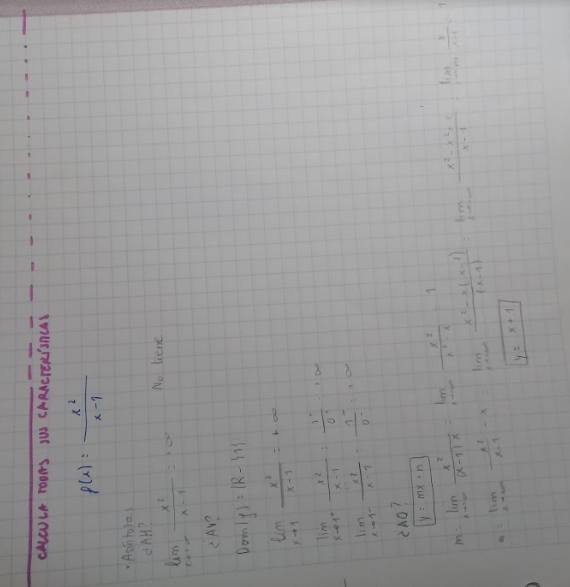 CALCULA TODAS SUS CARACTERÍSTICAS
f(x) = x²/(x-1)
• Asíntotas
¿AH?
lim x→+∞ x²/(x-1) = +∞ No tiene
¿AV?
Dom(f) = ℝ - {1}
lim x→1 x²/(x-1) = +∞
lim x→1⁺ x²/(x-1) =
lim x→1⁻ x²/(x-1) =
¿AO?
y = mx+n
m = lim x²/((x-1)x) = lim x²/(x²-x) = 1
n = lim x²/(x-1) - x lim (x²-x(x-1))/(x-1) = lim (x²-x²+x)/(x-1) = lim x/(x-1) = 1
y = x+1